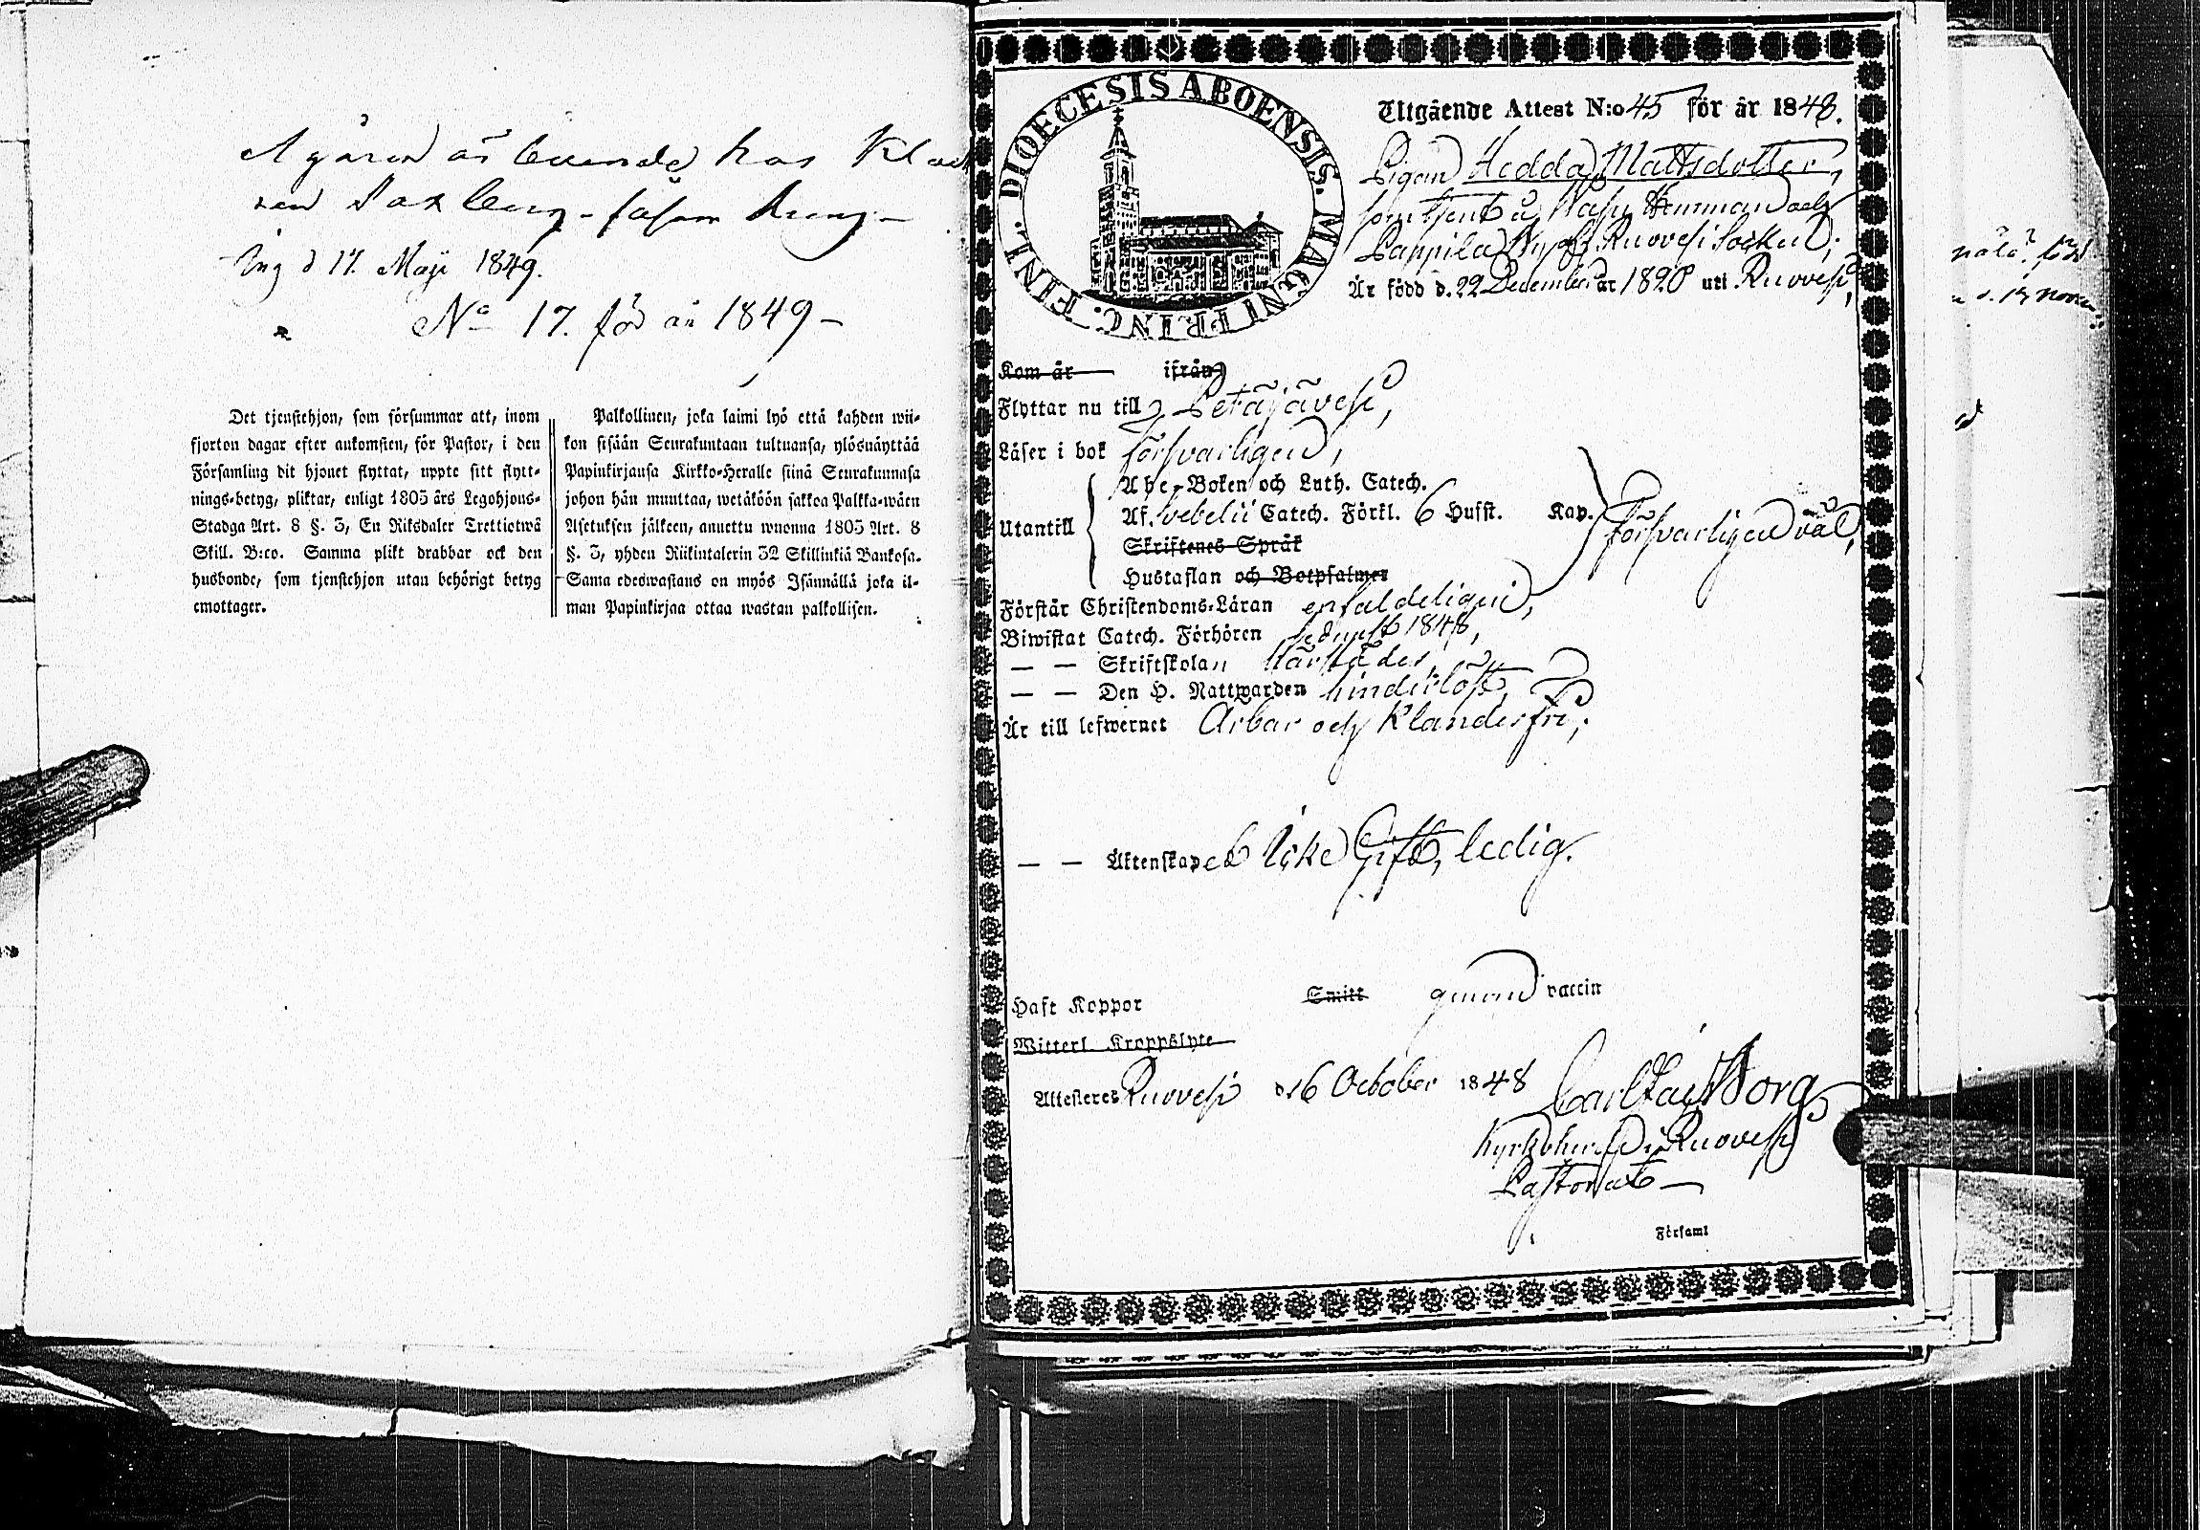 Ägaren är boende hos Klock
ren
d 17. Maji 1849.
No 17. för år 1849 –
Det tjenstehjon, som försummar att, inom
fjorton dagar efter ankomsten, för Pastor, i den
Församling dit hjonet flyttat, uppte sitt flytt-
nings-betyg, pliktar, enligt 1805 års Legohjons-
Stadga Art. 8 §. 3, En Riksdaler Trettiotwå
Skill. B:co. Samma plikt drabbar ock den
husbonde, som tjenstehjon utan behörigt betyg
emottager.
Palkollinen, joka laimi lyö että kahden wii-
kon sisään Seurakuntaan tultuansa, ylösnäyttää
Papinkirjansa Kirkko-Heralle siinä Seurakunnasa
johon hän muuttaa, wetäköön sakkoa Palkka-wäen
Asetuksen jälkeen, annettu wuonna 1805 Art. 8
§. 3, yhden Riikintalerin 32 Skillinkiä Bankosa.
Sama edeswastaus on myös Isännällä joka il-
man Papinkirjaa ottaa wastan palkollisen.
DIOECESIS ABOENSIS. MAGNI PRINC. FINL.
Utgående Attest N:o 45 för år 1848.
Pigan Hedda Mattsdotter,
som tjent å Wäsu Hemman och
Pappila Ruovesi Socken;
Är född d. 22 December år 1828 uti Ruovesi,
Kom år ifrån
Flyttar nu till Petäjävesi,
Läser i bok försvarligen,
Abc-Boken och Luth. Catech.
Utantill Af. Svebelii Catech. Förkl. 6 Hufst. Kap. försvarligen väl,
Skriftenes Språk
Hustaflan och Botpsalmer
Förstår Christendoms-Läran enfaldeligen,
Biwistat Catech. Förhören sednast 1848,
— — Skriftskolan härstädes,
— — Den H. Nattwarden hinderlöst,
Är till lefwernet Ärbar och Klanderfri;
— — Äktenskapet Icke Gift, ledig.
Haft Koppor Smitt genom vaccin
Witterl. Kroppslyte
Attesteres Ruovesi d. 16 October 1848 Carl Borg
Kyrkoherde i Ruovesi
Pastorat —
Församl
d. 17 Novem